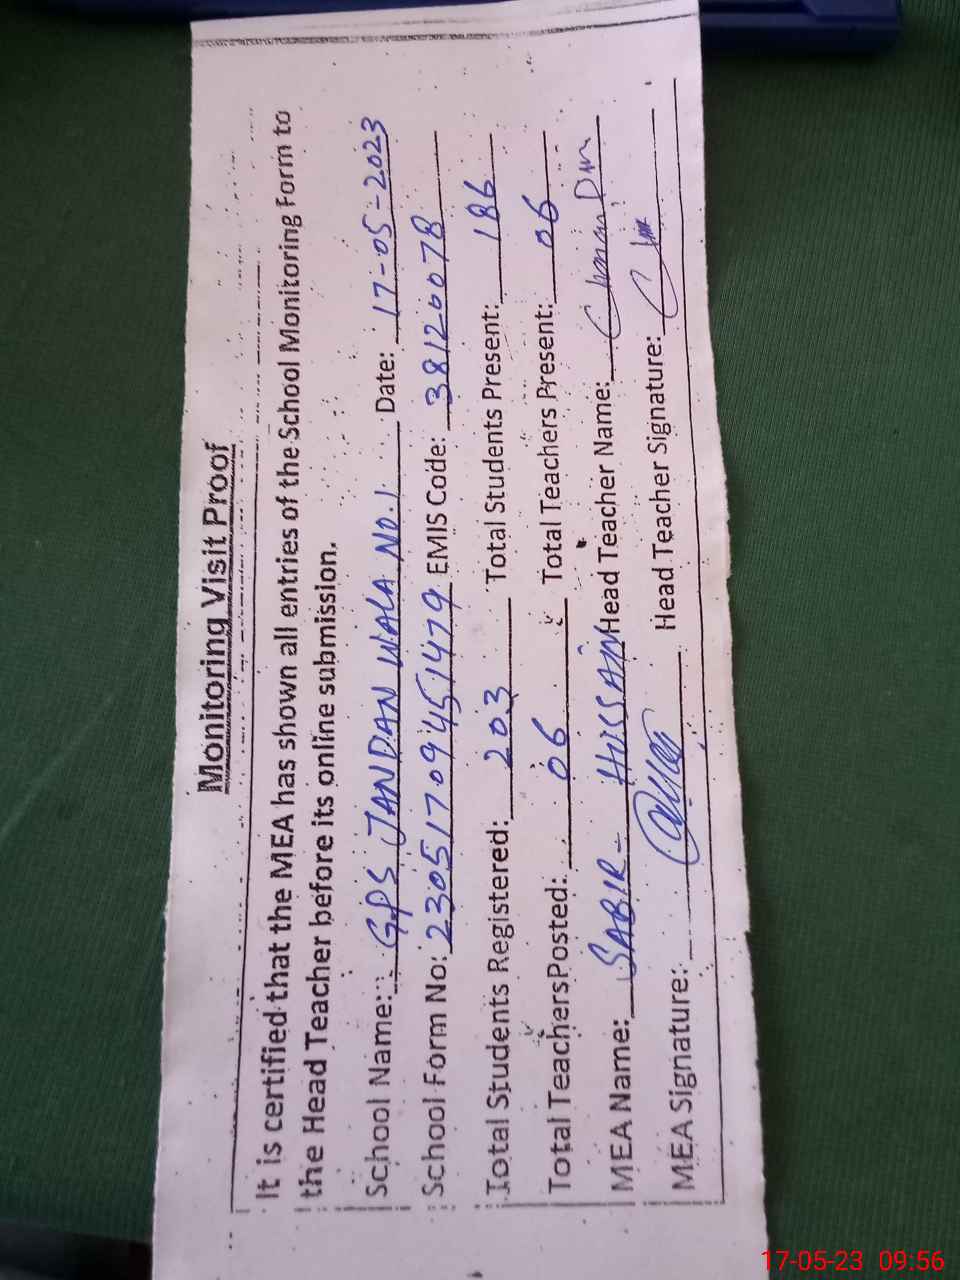 Monitoring Visit Proof
It is certified that the MEA has shown all entries of the School Monitoring Form to
the Head Teacher before its online submission.
School Name: GPS JANDAN WALA NO.1 Date: 17-05-2023
School Form No: 23051709451479 EMIS Code: 38120078
Total Students Registered: 203 Total Students Present: 186
Total Teachers Posted: 06 Total Teachers Present: 06
MEA Name: SABIR- HUSSAIN Head Teacher Name: Chanan Din
MEA Signature: Head Teacher Signature:
17-05-23 09:56